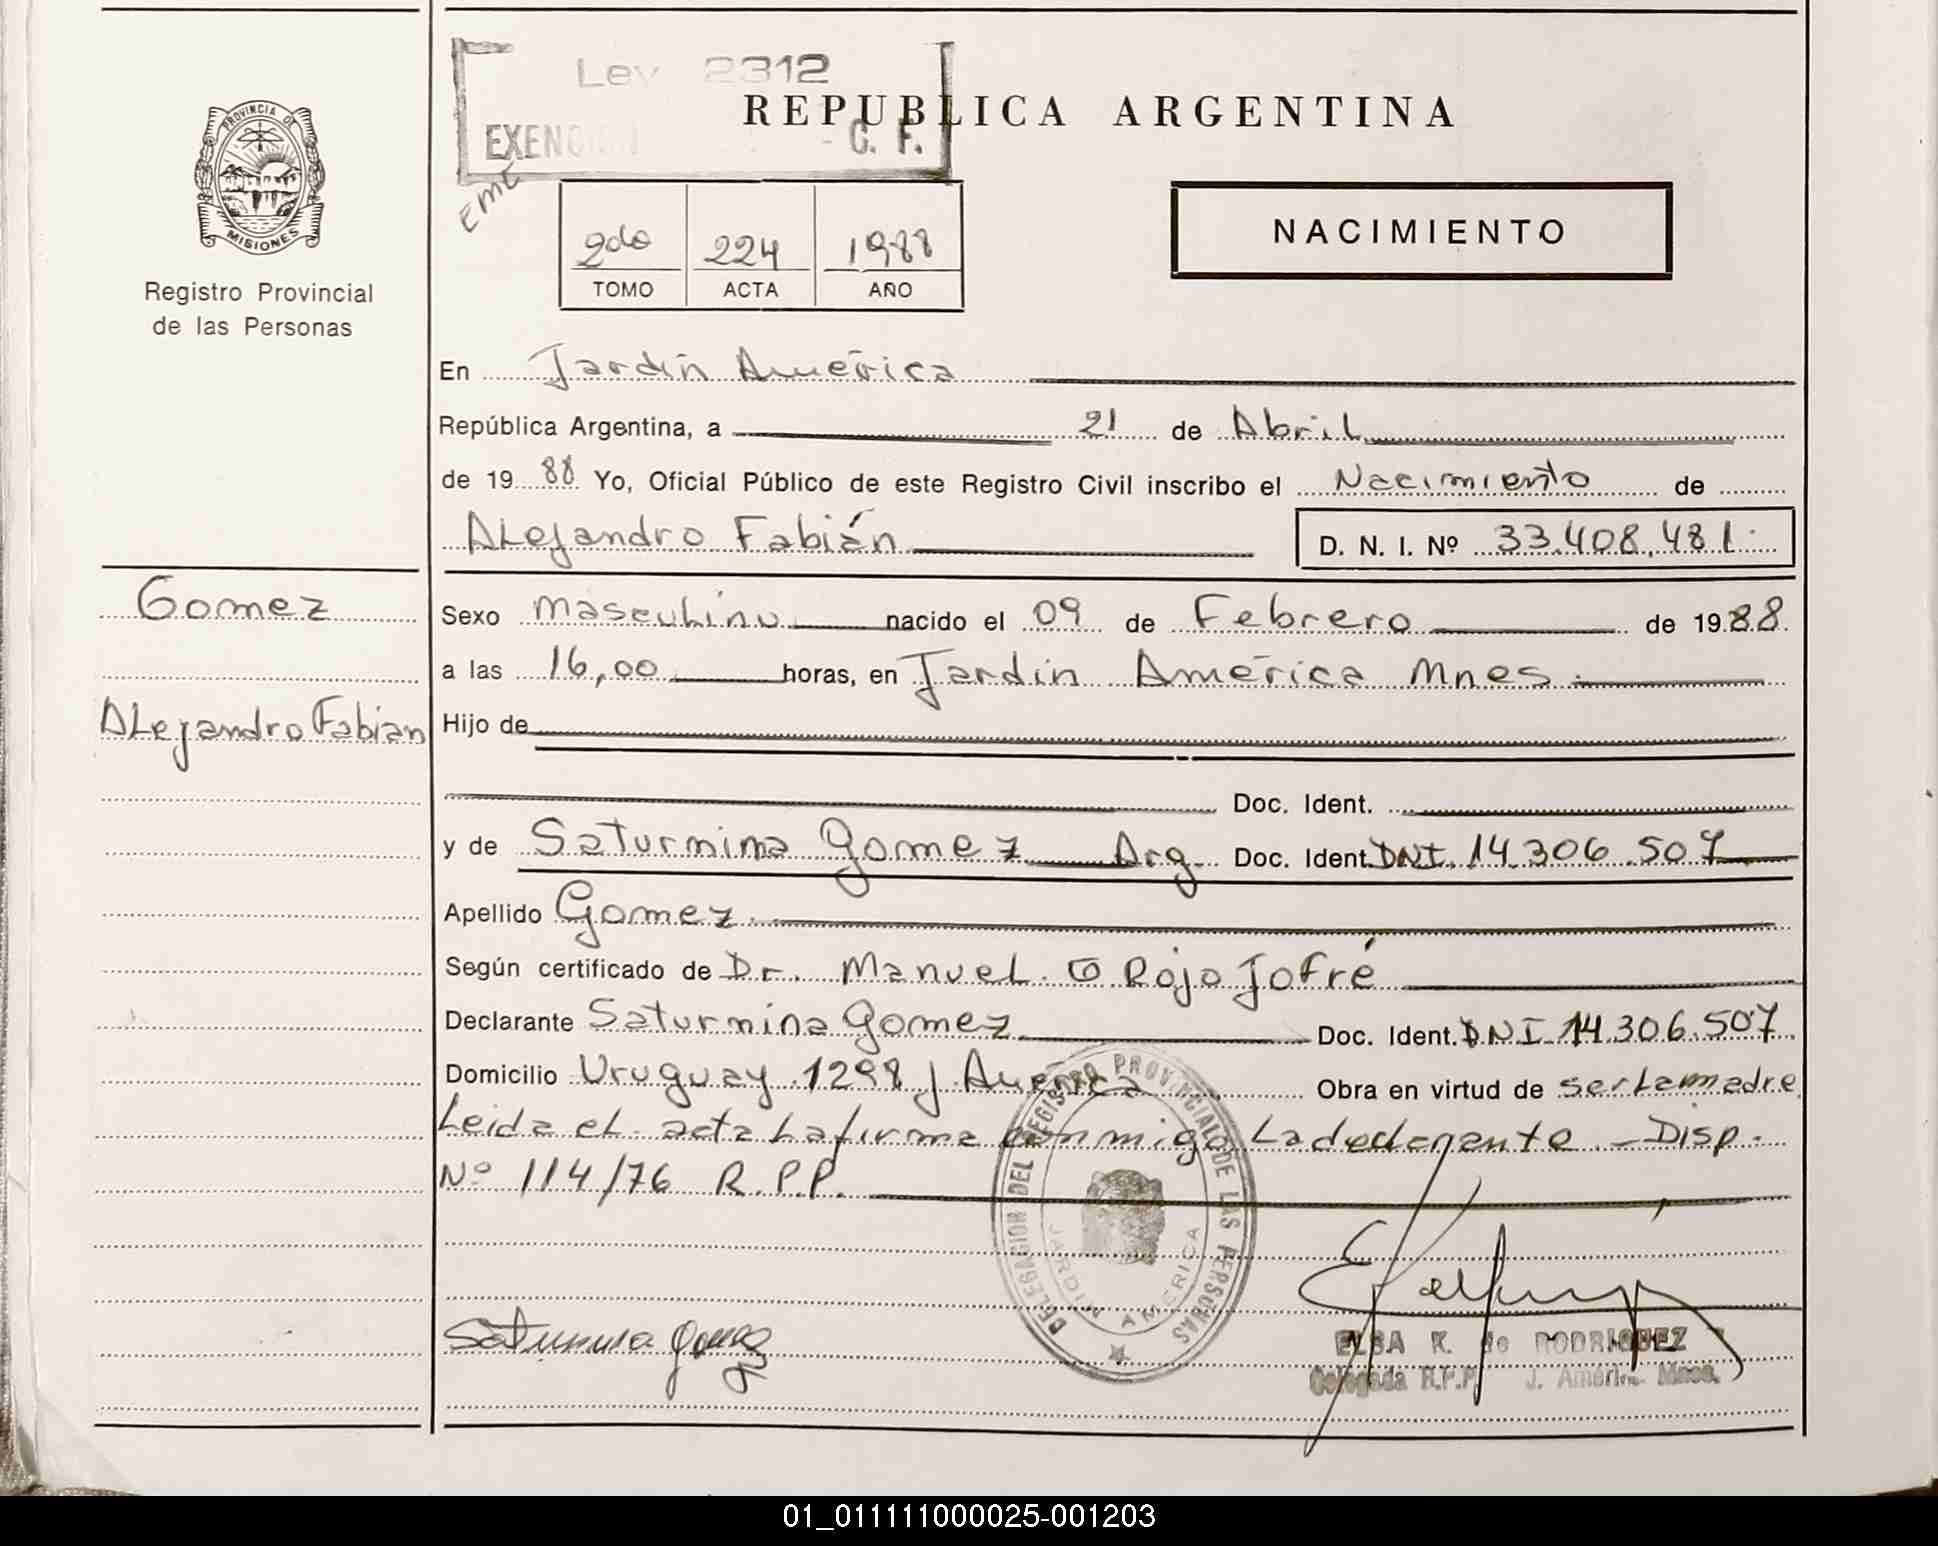 Ley 2312
EXENCION - C. F.
REPUBLICA ARGENTINA
PROVINCIA DE
MISIONES
Registro Provincial
de las Personas
NACIMIENTO
2do 224 1988
TOMO ACTA AÑO
En Jardín América
República Argentina, a 21 de Abril
de 19 88 Yo, Oficial Público de este Registro Civil inscribo el Nacimiento de
Alejandro Fabián D. N. I. Nº 33.408.481
Gomez
Alejandro Fabian
Sexo Masculino nacido el 09 de Febrero de 1988
a las 16,00 horas, en Jardín América Mnes
Hijo de
Doc. Ident.
y de Saturnina Gomez Arg. Doc. Ident. DNI. 14.306.507
Apellido Gomez
Según certificado de Dr. Manuel G Rojo Jofré
Declarante Saturnina Gomez Doc. Ident. DNI 14.306.507
Domicilio Uruguay 1298 J. América Obra en virtud de ser La madre
Leida el acta La firma conmigo La declarante. - Disp.
Nº 114/76 R.P.P.
DELEGACION DEL REGISTRO PROVINCIAL DE LAS PERSONAS
JARDIN AMERICA
Saturnina Gomez
ELSA K. de RODRIGUEZ
Delegada R.P.P. J. América Mnes.
01_011111000025-001203